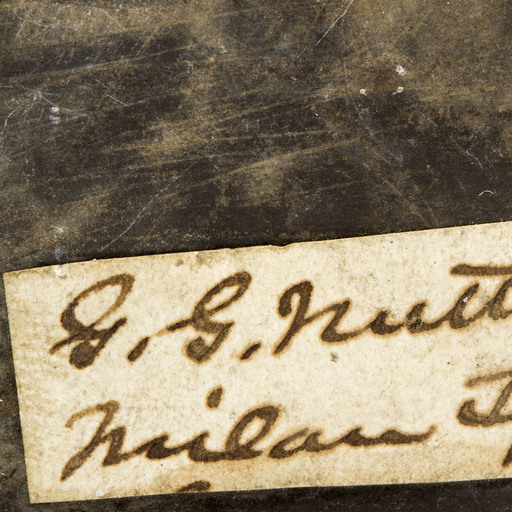 G. G. Nutt
Milan